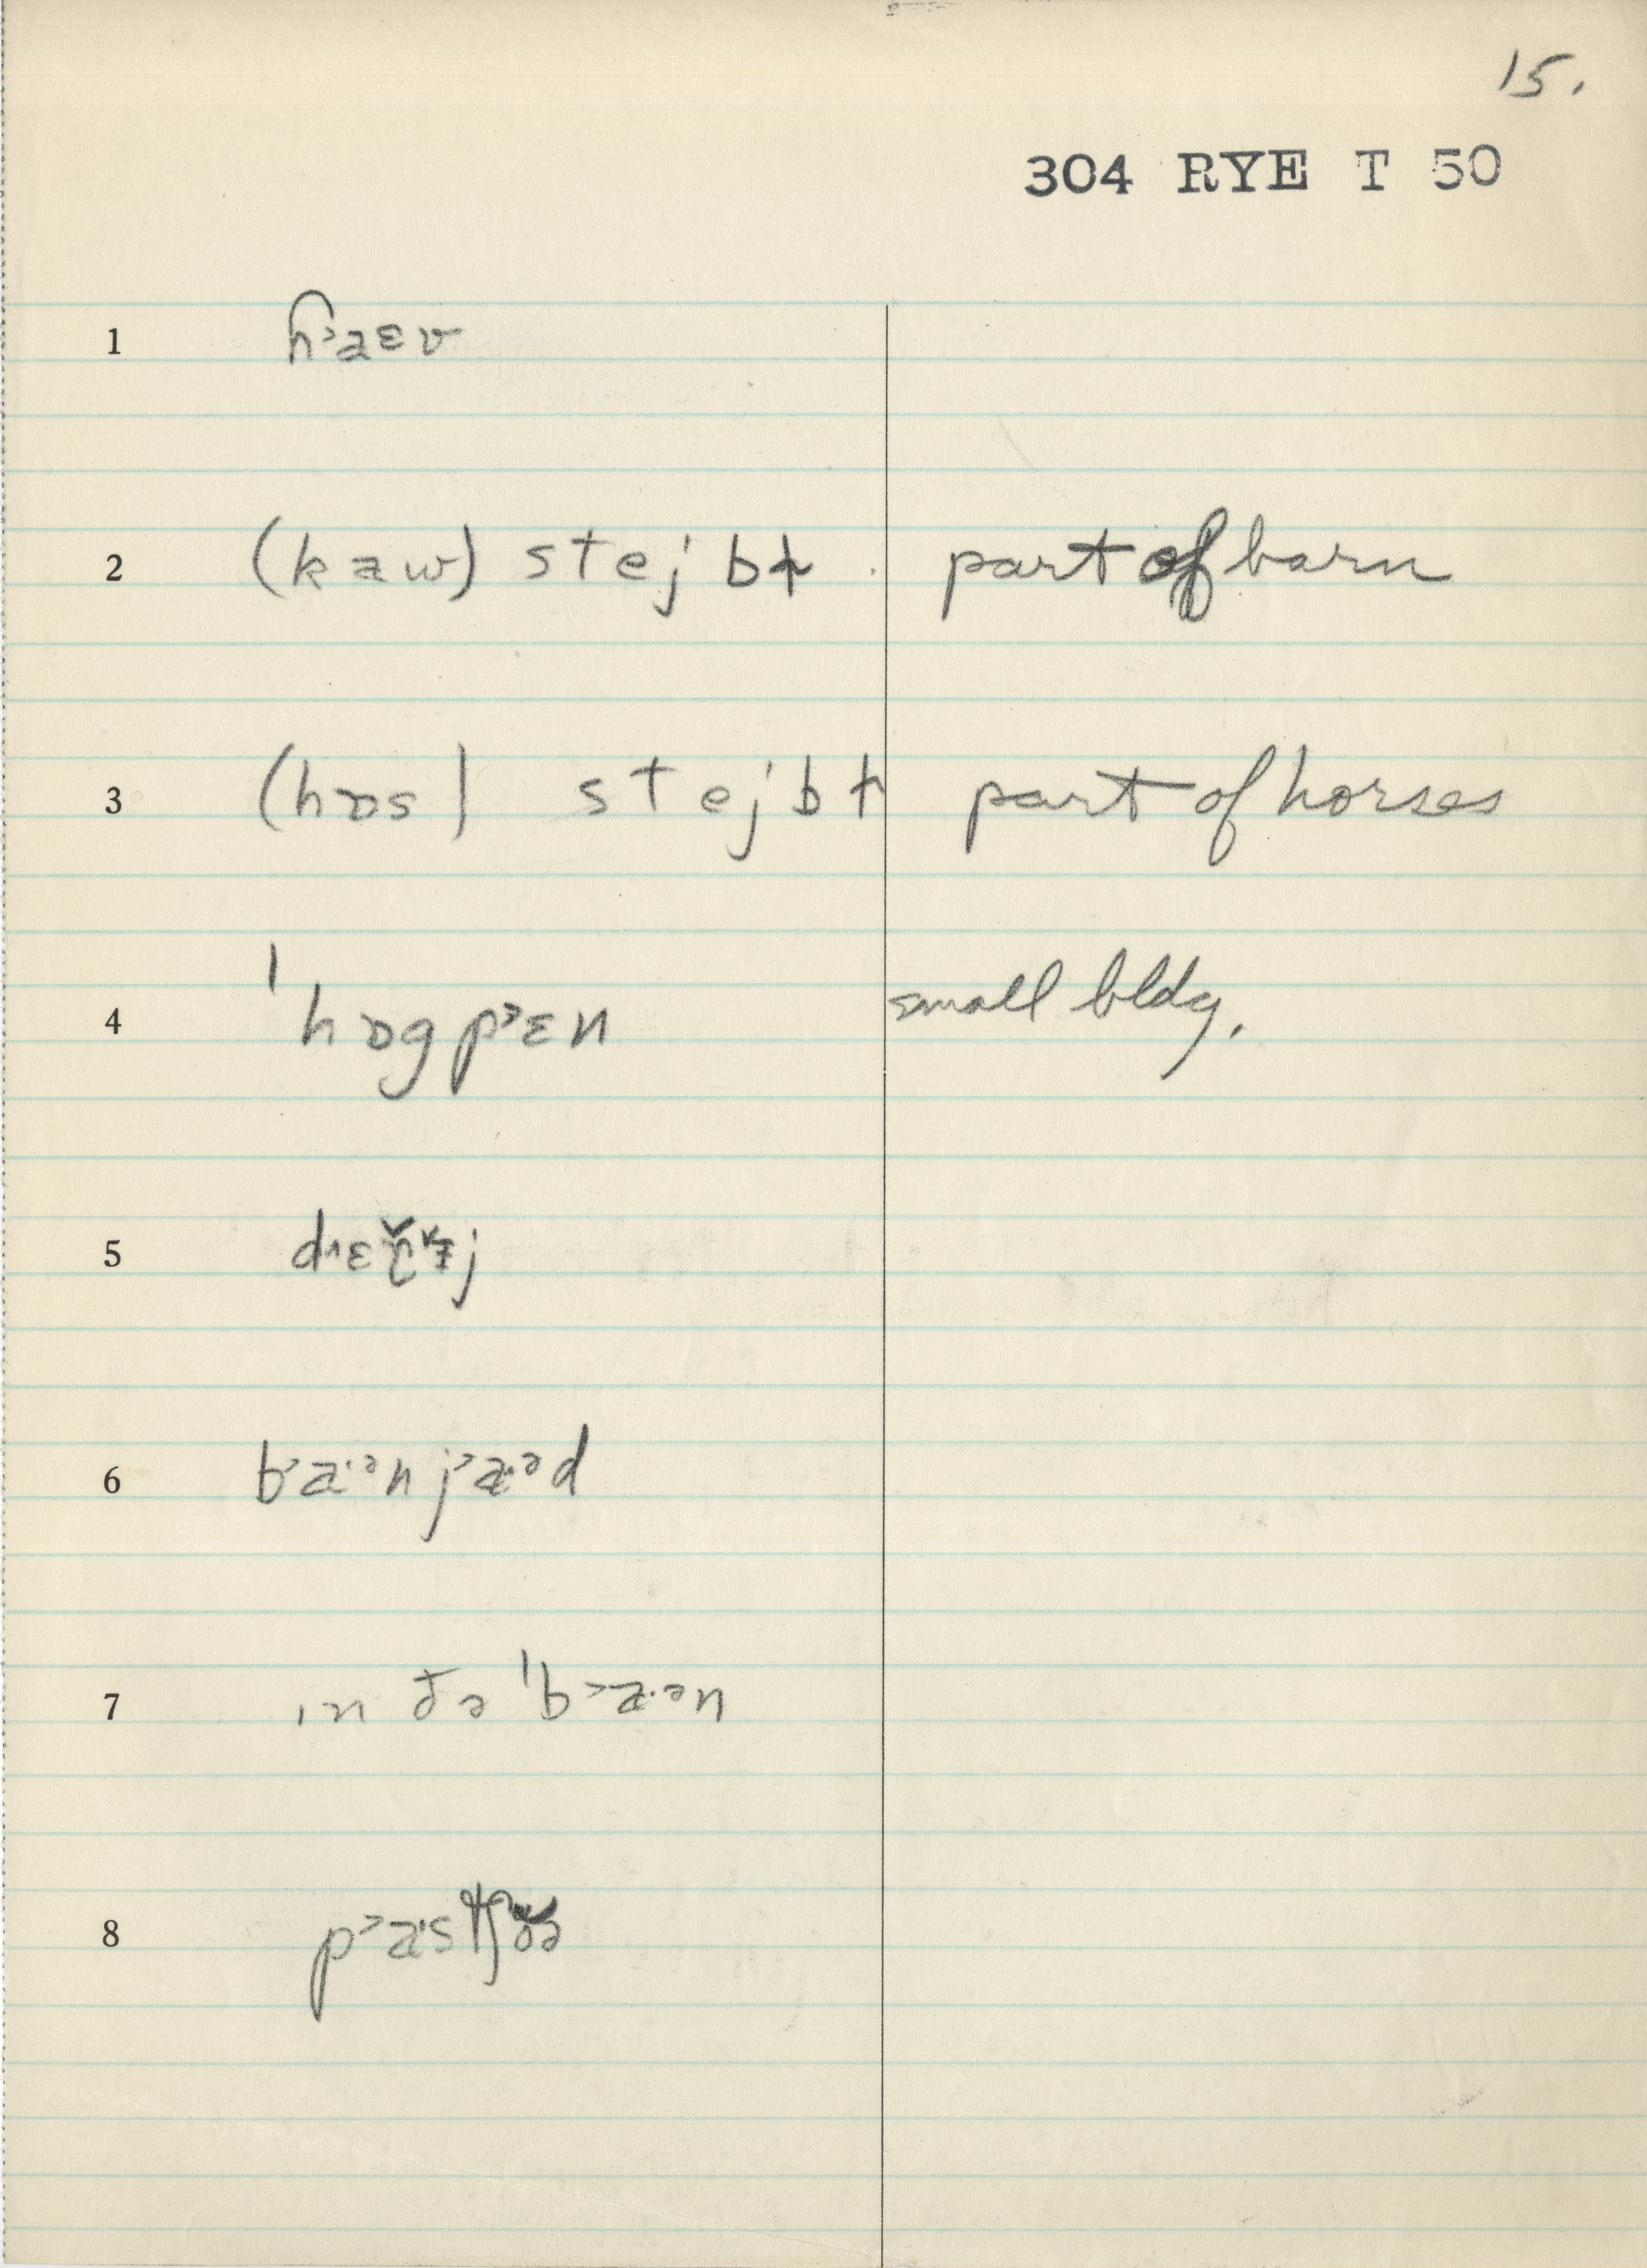 15.
304 RYE T 50
1 h˃aɛv
2 (kaw) stejbɫ part of barn
3 (hɒs) stejbɫ part of horses
4 ˈhɒgp˃ɛn small bldg.
5
6 b˃a·ᵊn j˃a·ᵊd
7 ɪn ðə ˈb˃a·ᵊn
8